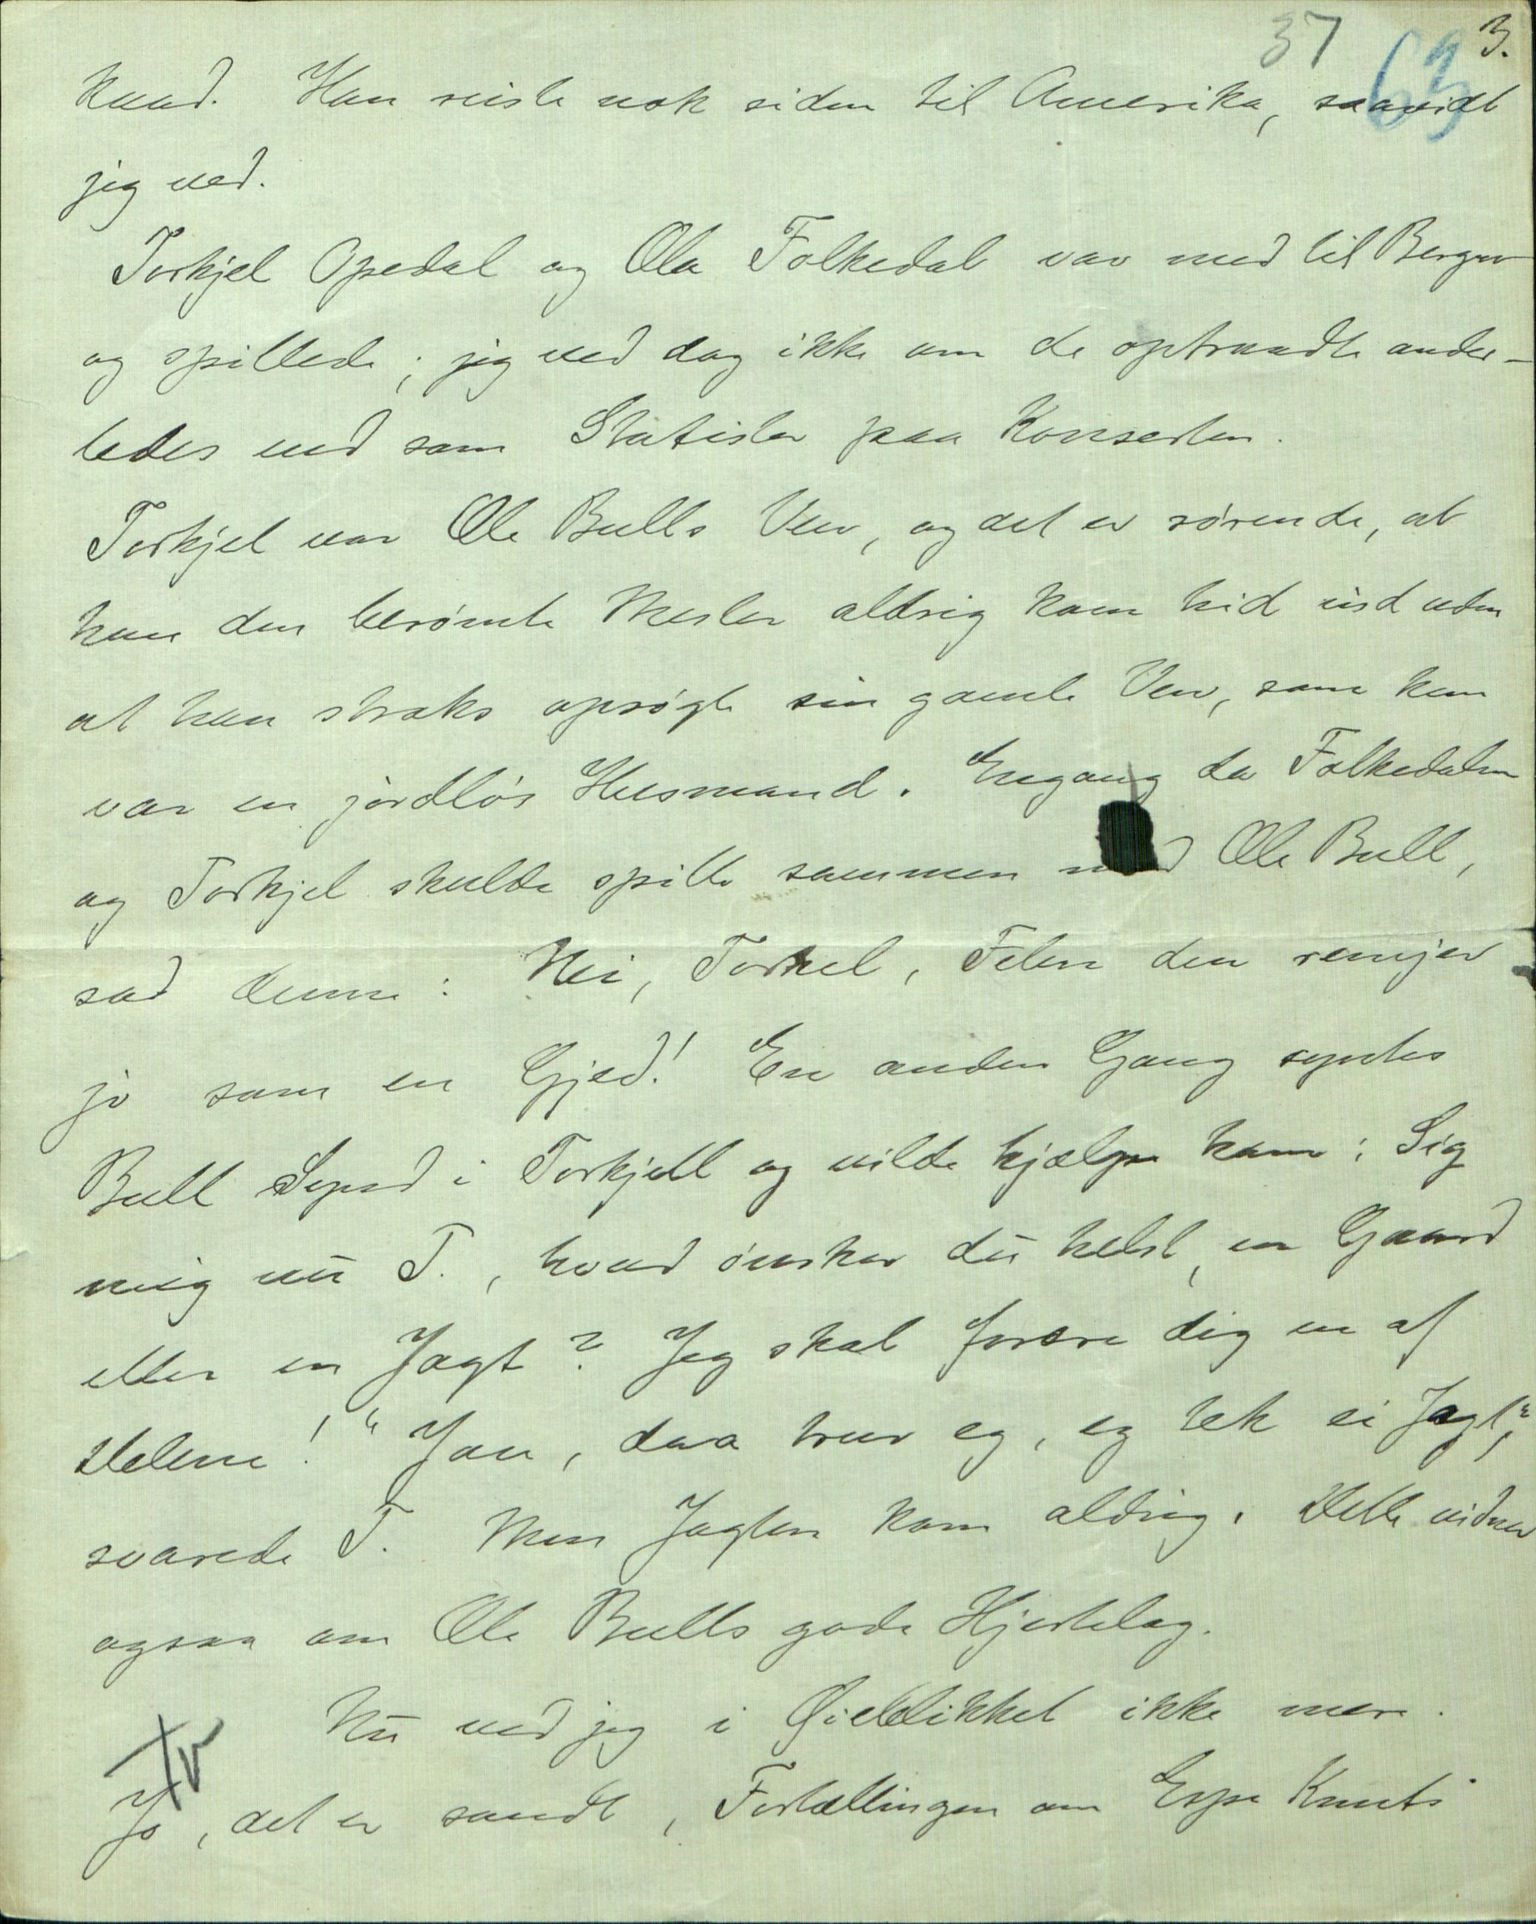 37 63 3.
Knud. Han reiste nok siden til Amerika, saavidt
jeg ved.
Torkjel Opedal og Ola Folkedal var med til Bergen
og spillede; jeg ved dog ikke om de optraadte ander-
ledes end som Statister paa Konserten.
Torkjel var Ole Bulls Ven, og det er rørende, at
han den berømte Mester aldrig kom hid ind uden
at han straks opsøgte sin gamle Ven, som kun
var en jordløs Husmand. Engang da Folkedalen
og Torkjel skulde spille sammen med Ole Bull,
sad denne: Nei, Torkel, Felen den remjer
jo som en Gjed! En anden Gang syntes
Bull Synd i Torkjell og vilde hjælpe ham: Sig
mig nu T., hvad ønsker du helst, en Gaard
eller en Jagt? Jeg skal forære dig en af
delene!" Jau, daa trur eg, eg tek ei Jagt",
svarede T. Men Jagten kom aldrig. Dette vidner
ogsaa om Ole Bulls gode Hjertelag.
Nu ved jeg i Øieblikket ikke mere.
Jo, det er sandt, Fortællingen om Espe Knuts